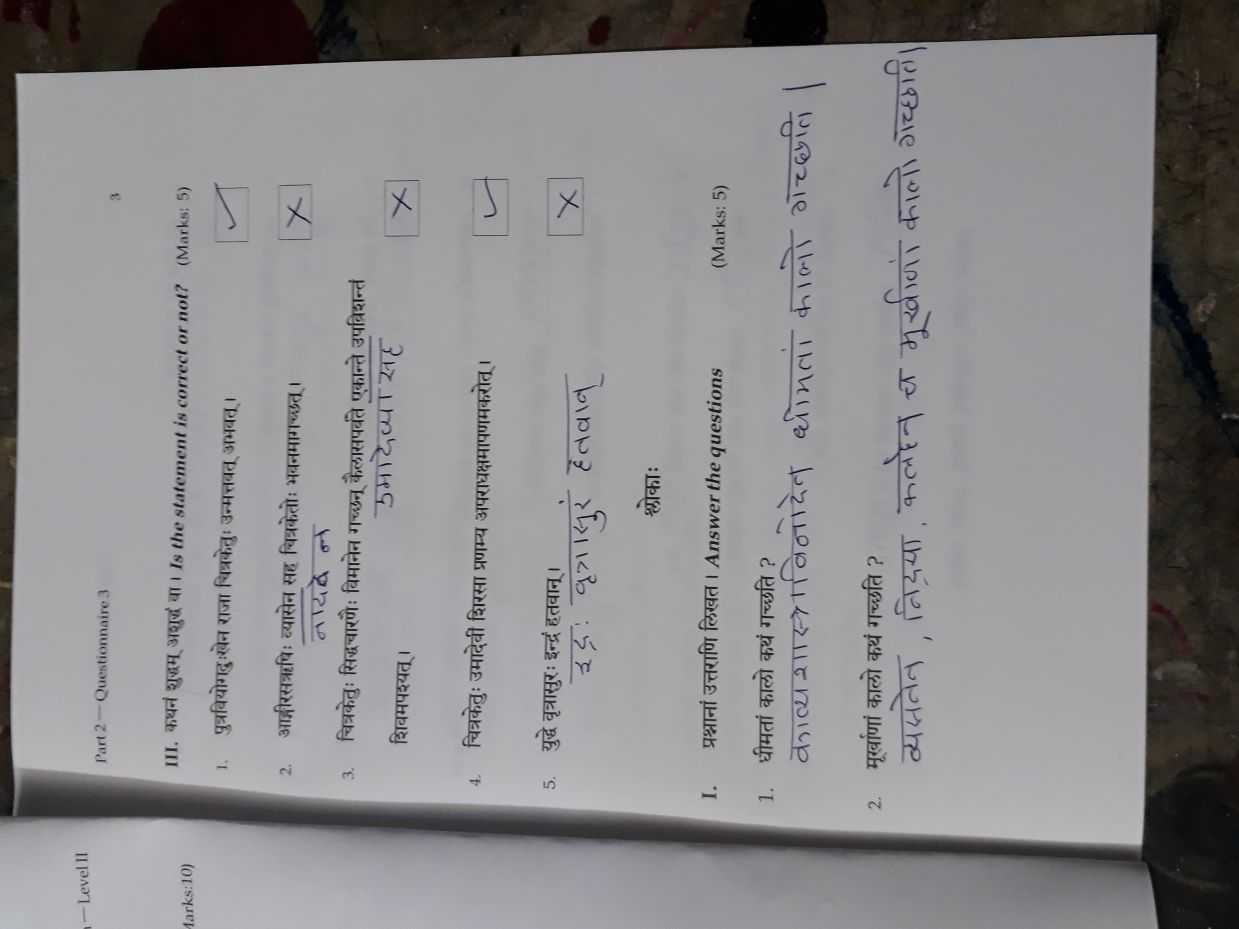 — Level II
Marks:10)
Part 2 — Questionnaire 3
3
III. कथनं शुद्धम् अशुद्धं वा । Is the statement is correct or not? (Marks: 5)
1. पुत्रवियोगदुःखेन राजा चित्रकेतुः उन्मत्तवत् अभवत् । ✓
2. आङ्गीरसऋषिः व्यासेन सह चित्रकेतोः भवनमागच्छत् । ×
नारदेन
3. चित्रकेतुः सिद्धचारणैः विमानेन गच्छन् कैलासपर्वते एकान्ते उपविशन्तं
उमादेव्या सह
शिवमपश्यत् । ×
4. चित्रकेतुः उमादेवीं शिरसा प्रणम्य अपराधक्षमापणमकरोत् । ✓
5. युद्धे वृत्रासुरः इन्द्रं हतवान् । ×
इन्द्रः वृत्रासुरं हतवान्
श्लोकाः
I. प्रश्नानां उत्तराणि लिखत । Answer the questions (Marks: 5)
1. धीमतां कालो कथं गच्छति ?
काव्यशास्त्राविनोदेन धीमतां कालो गच्छति |
2. मूर्खाणां कालो कथं गच्छति ?
व्यसनेन , निद्रया , कलहेन च मूर्खाणां कालो गच्छति|